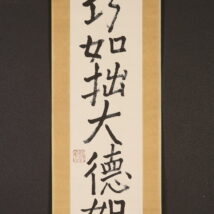 巧如拙大徳如